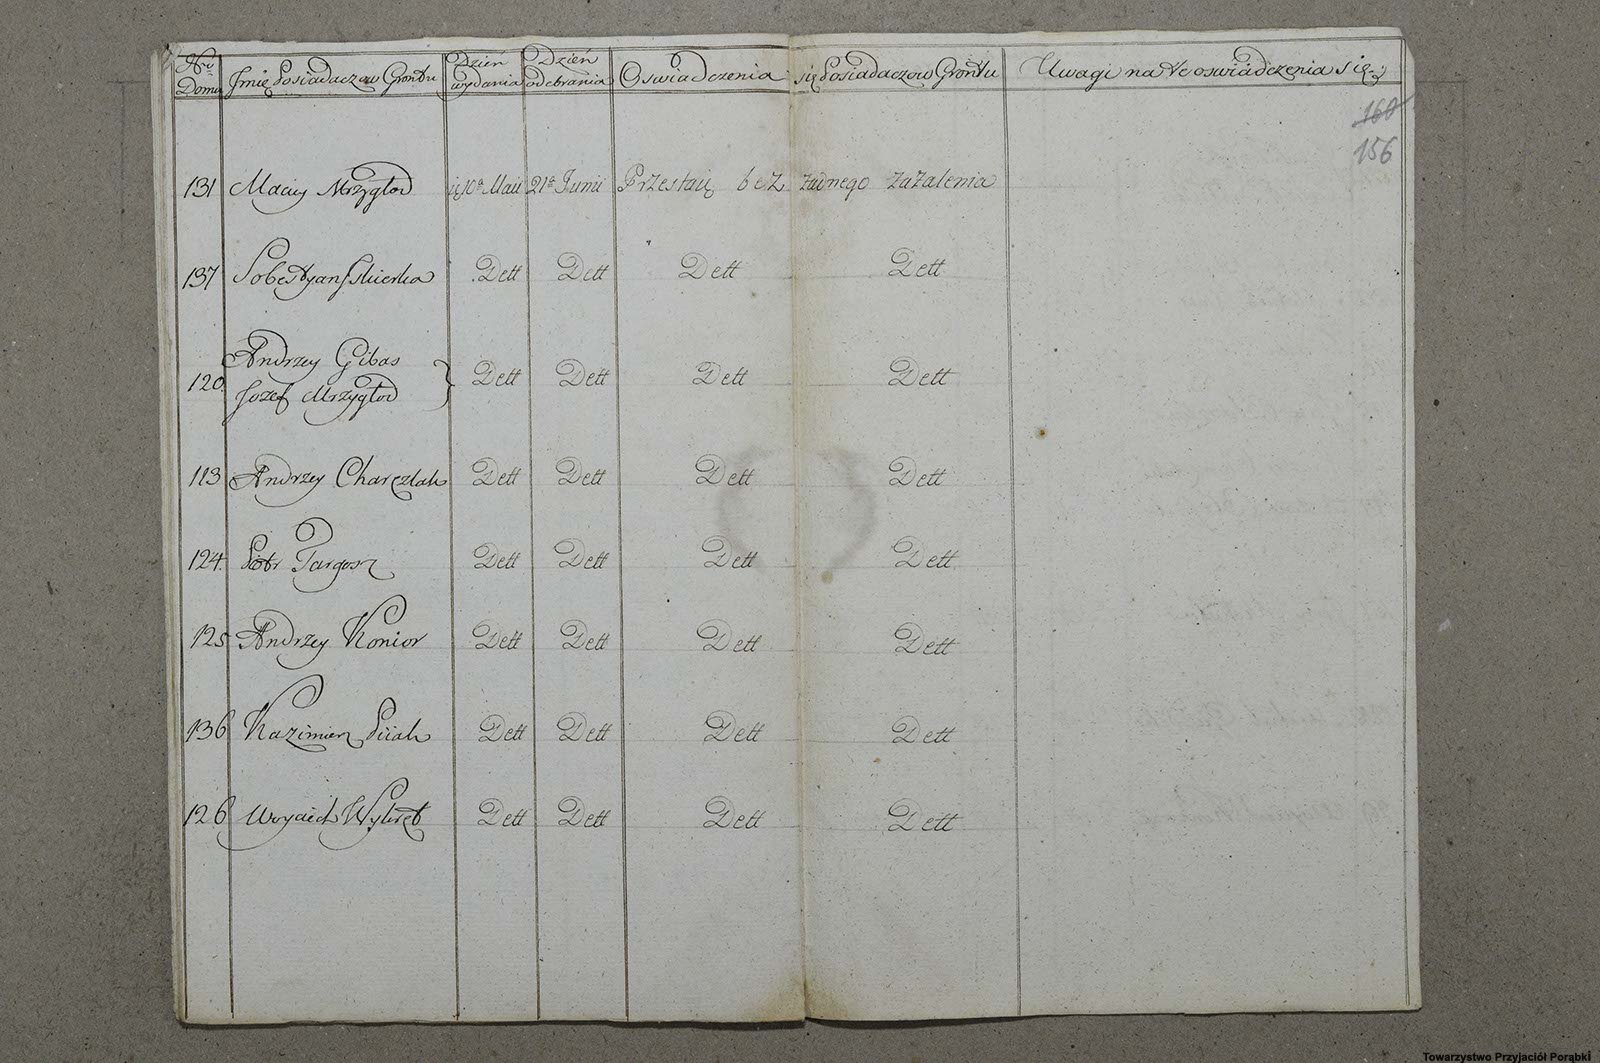 Nro Domu Jmię Posiadaczow Grontu Dzień wydania Dzień odebrania Oswiadczenia się Posiadaczow Grontu Uwagi na te oswiadczenia się
160
156
131 Maciey Mrzygłod 10a Maii 21a Junii Przestaię bez żadnego zażalenia
137 Sobestyan Skierka Dett Dett Dett Dett
Andrzey Gibas
120. Dett Dett Dett Dett
Jozef Mrzygłod
113 Andrzey Charęzlak Dett Dett Dett Dett
124. Piotr Targosz Dett Dett Dett Dett
125 Andrzey Konior Dett Dett Dett Dett
136 Kazimierz Dett Dett Dett Dett
126 Woyciech Wykręt Dett Dett Dett Dett
Towarzystwo Przyjaciół Porąbki